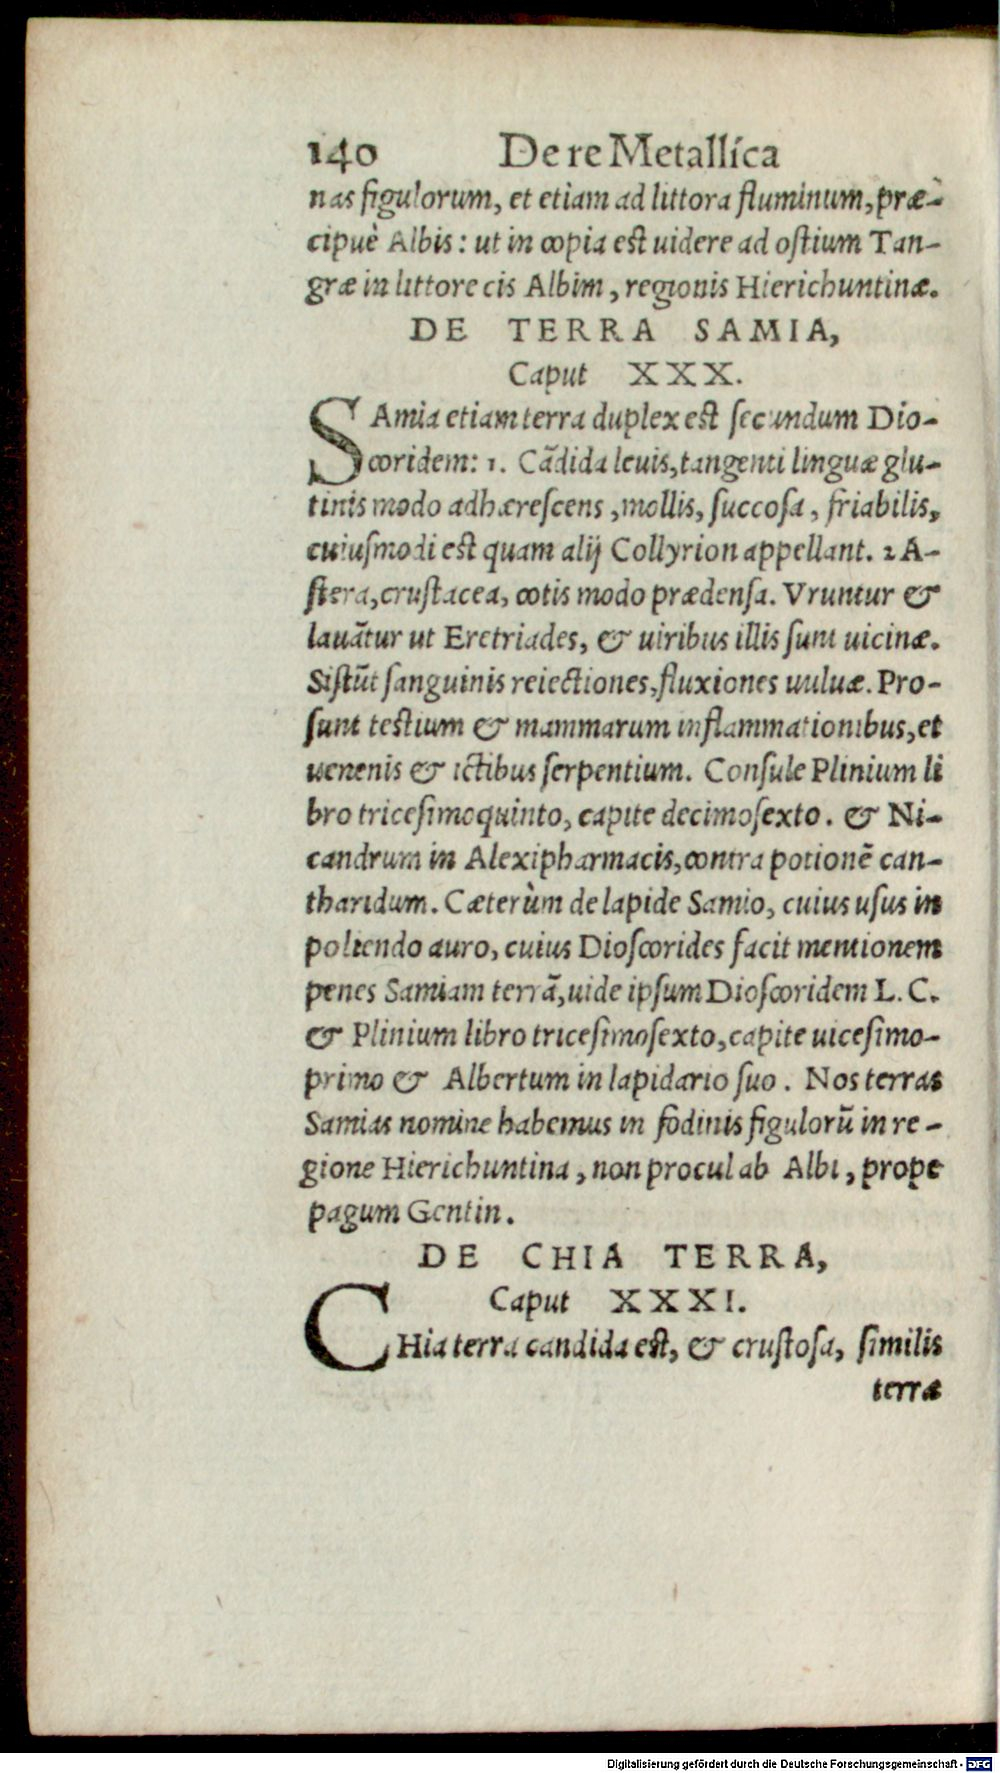 140 De re Metallica
nas figulorum, et etiam ad littora fluminum, præ-
cipuè Albis: ut in copia est uidere ad ostium Tan-
græ in littore cis Albim, regionis Hierichuntinæ.
DE TERRA SAMIA,
Caput XXX.
SAmia etiam terra duplex est secundum Dio-
coridem: 1. Cãdida leuis, tangenti linguæ glu-
tinis modo adhærescens, mollis, succosa, friabilis,
cuiusmodi est quam alij Collyrion appellant. 2 A-
stera, crustacea, cotis modo prædensa. Vruntur &
lauãtur ut Eretriades, & uiribus illis sunt uicinæ.
Sistũt sanguinis reiectiones, fluxiones uuluæ. Pro-
sunt testium & mammarum inflammationibus, et
uenenis & ictibus serpentium. Consule Plinium li
bro tricesimoquinto, capite decimosexto. & Ni-
candrum in Alexipharmacis, contra potionẽ can-
tharidum. Cæterùm de lapide Samio, cuius usus in
poliendo auro, cuius Dioscorides facit mentionem
penes Samiam terrã, uide ipsum Dioscoridem L. C.
& Plinium libro tricesimosexto, capite uicesimo-
primo & Albertum in lapidario suo. Nos terras
Samias nomine habemus in fodinis figulorũ in re-
gione Hierichuntina, non procul ab Albi, prope
pagum Gentin.
DE CHIA TERRA,
Caput XXXI.
CHia terra candida est, & crustosa, similis
terræ
Digitalisierung gefördert durch die Deutsche Forschungsgemeinschaft - DFG